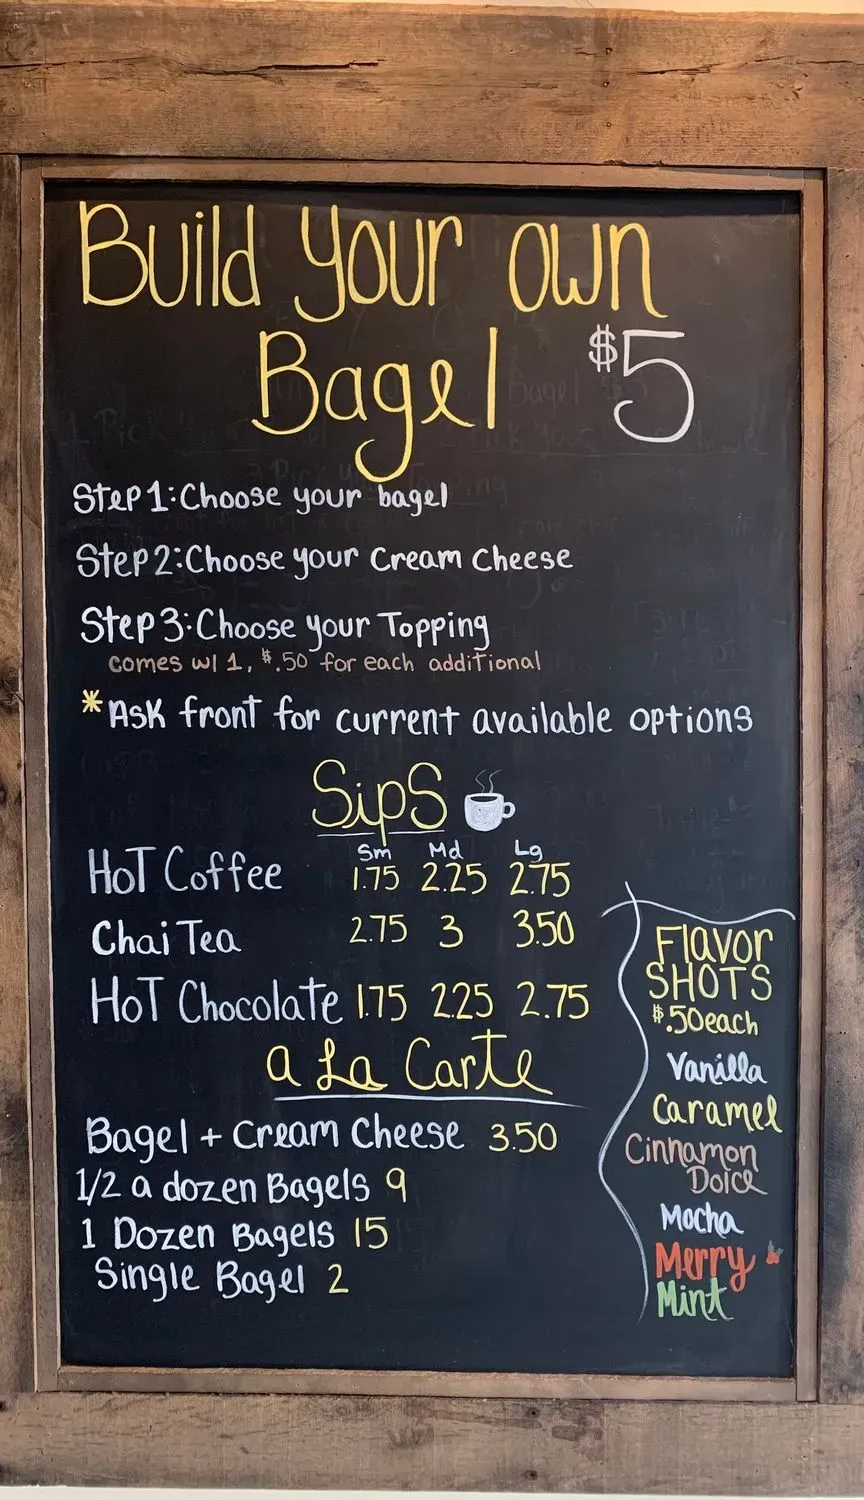 Build Your own
Bagel $5
Step 1: Choose your bagel
Step 2: Choose your Cream Cheese
Step 3: Choose your Topping
comes w/ 1, $.50 for each additional
*Ask front for current available options
Sips
Sm Md Lg
Hot Coffee 1.75 2.25 2.75
Chai Tea 2.75 3 3.50
Hot Chocolate 1.75 2.25 2.75
a La Carte
Bagel + Cream Cheese 3.50
1/2 a dozen Bagels 9
1 Dozen Bagels 15
Single Bagel 2
Flavor
SHOTS
$.50 each
Vanilla
Caramel
Cinnamon
Dolce
Mocha
Merry
Mint